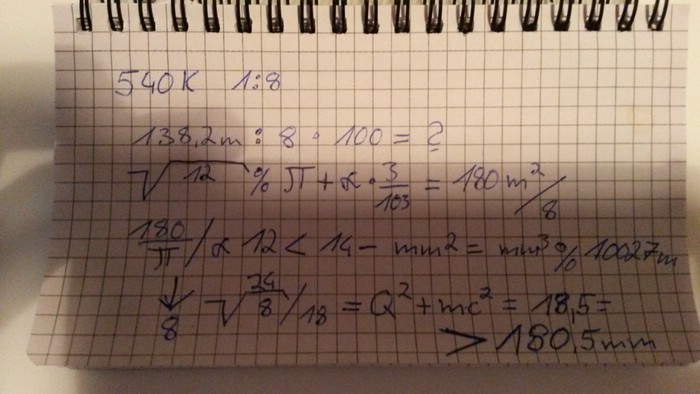 540K 1:8
138,2m : 8 · 100 = ?
√12 % π + α · 3/103 = 180 m²/8
180/π / α 12 < 14 - mm² = mm³ % 10027m
↓ 8 √24/8 / 18 = Q² + mc² = 18,5 =
> 180,5mm